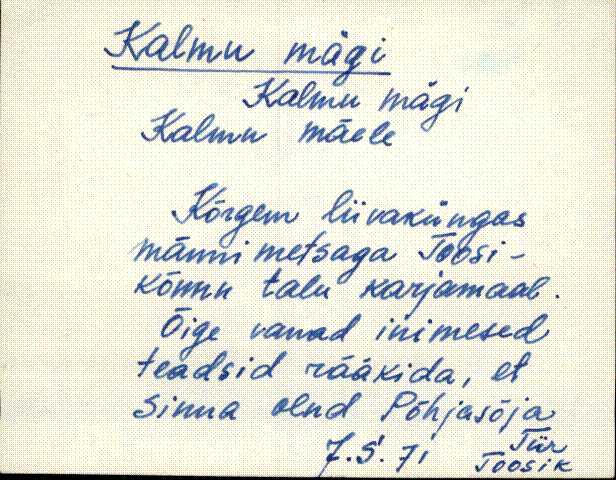 Kalmu mägi
Kalmu mägi
Kalmu mäele
Kõrgem liivaküngas
männimetsaga Toosi-
kõnnu talu karjamaal.
Õige vanad inimesed
teadsid rääkida, et
sinna olnd Põhjasõja
7.S. 71 Tür
Toosik